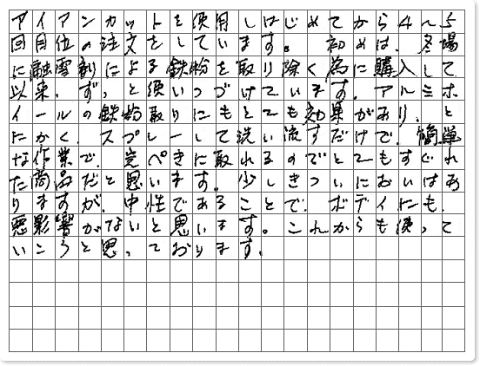 アイアンカットを使用しはじめてから4~5
回目位の注文をしています。初めは、冬場
に融雪剤による鉄粉を取り除く為に購入して
以来、ずっと使いつづけています。アルミホ
イールの鉄粉取りにもとても効果があり、と
にかく、スプレーして洗い流すだけで、簡単
な作業で、完ぺきに取れるのでとてもすぐれ
た商品だと思います。少しきついにおいはあ
りますが、中性であることで、ボディにも、
悪影響がないと思います。これからも使って
いこうと思っております。